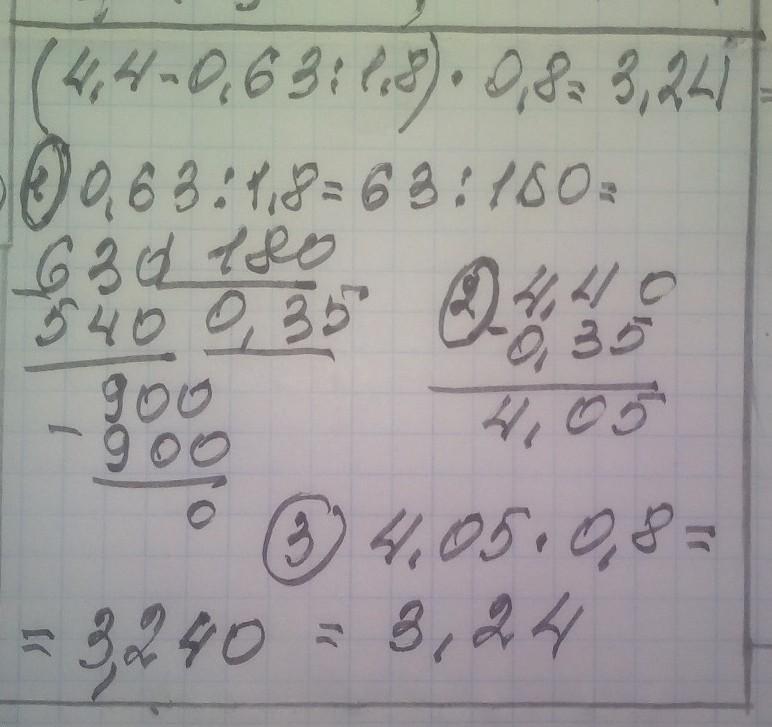 (4,4-0,63:1,8)·0,8=3,24
① 0,63:1,8=63:180=
-630 180
540 0,35
-900
900
0
② 4,40
-0,35
4,05
③ 4,05·0,8=
=3,240=3,24